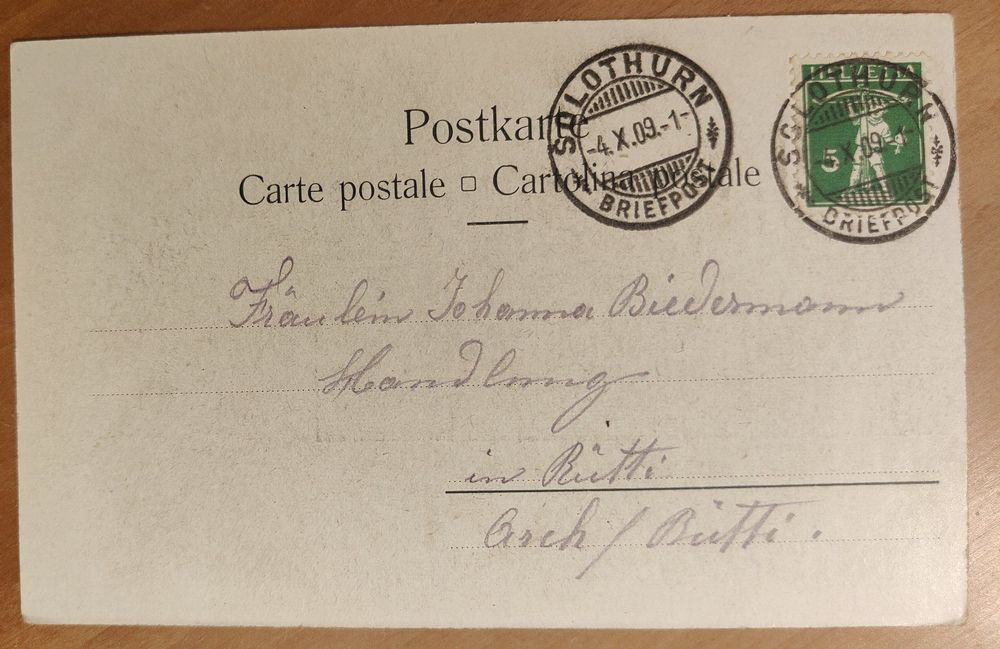 Postkarte
Carte postale □ Cartolina postale
SOLOTHURN
-4.X.09.-1-
BRIEFPOST
HELVETIA
5
SOLOTHURN
-4.X.09.-1-
BRIEFPOST
Fräulein Johanna Biedermann
Handlung
in Rütti
Arch / Rütti.